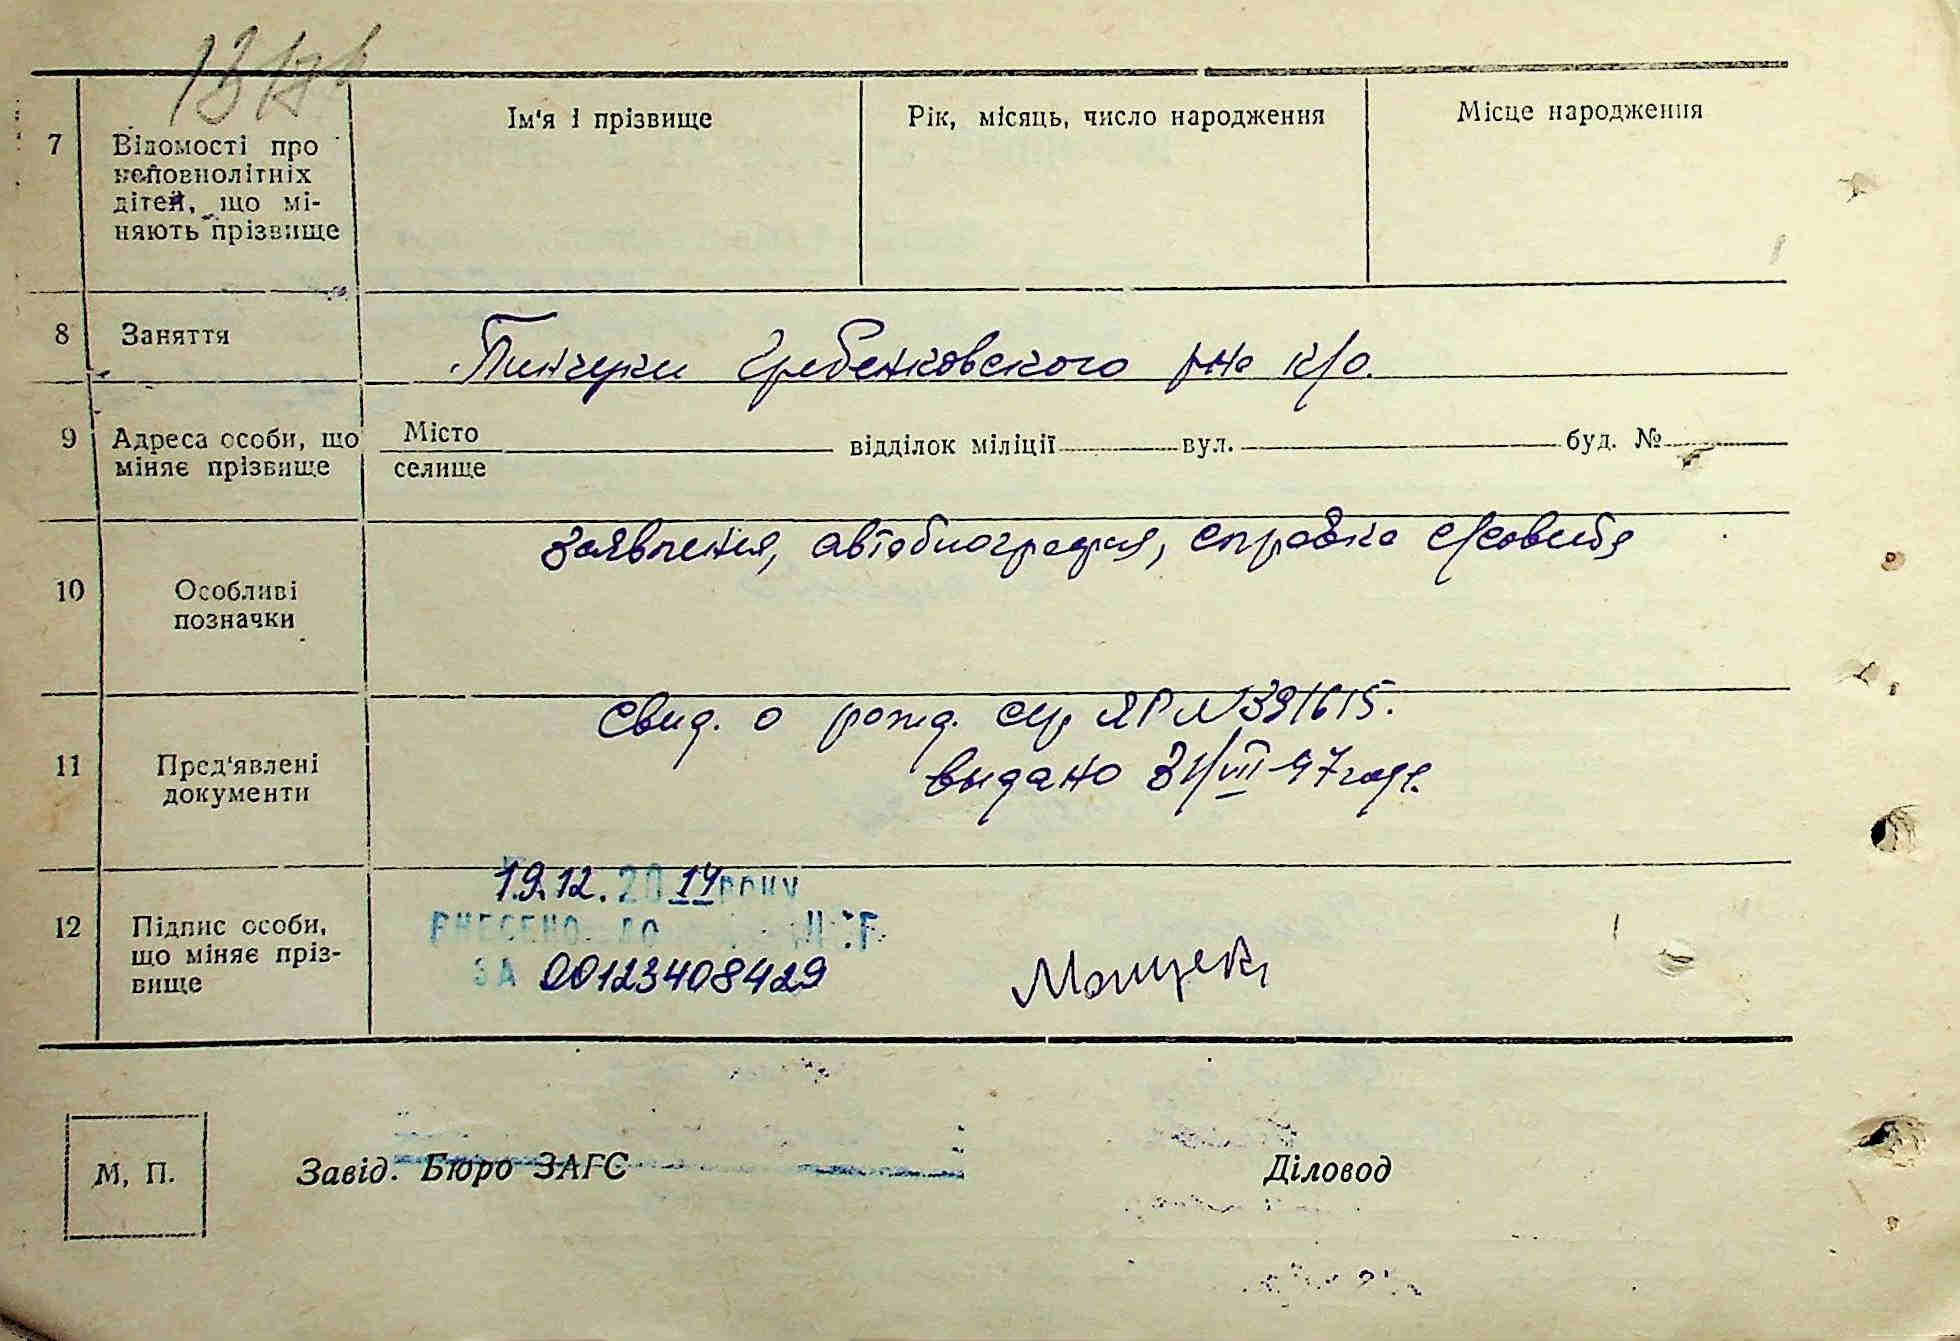 Ім'я і прізвище
Рік, місяць, число народження
Місце народження
7
Відомості про
неповнолітніх
дітей, що мі-
няють прізвище
8
Заняття
Гребенковского р-на к/о.
9
Адреса особи, що
міняє прізвище
Місто
селище
відділок міліції
вул.
буд. №
заявления, автобиография, справка с/совета
10
Особливі
позначки
свид. о рожд. сер ЯР N 391615.
выдано 31/VII-47 года.
11
Пред'явлені
документи
19.12.2014 року
ВНЕСЕНО ДО
ЗА 00123408429
12
Підпис особи,
що міняє пріз-
вище
М. П.
Завід. Бюро ЗАГС
Діловод